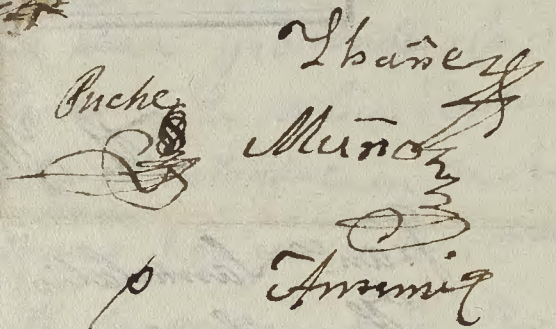 Ybañez
Puche
Muñoz
Ante mi